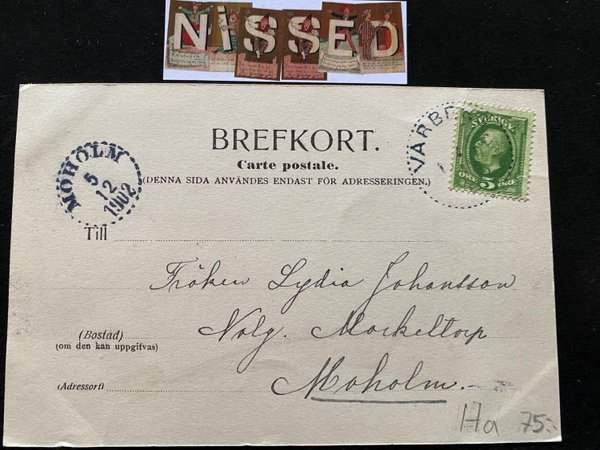 NISSED
BREFKORT.
Carte postale.
(DENNA SIDA ANVÄNDES ENDAST FÖR ADRESSERINGEN.)
MOHOLM
5
12
1902
VARBE
SVERIGE
ÖRE 5 ÖRE
Till
Fröken Lydia Johansson
(Bostad)
(om den kan uppgifvas)
Volg. Mockeltorp
(Adressort)
Moholm.
Ha 75:-